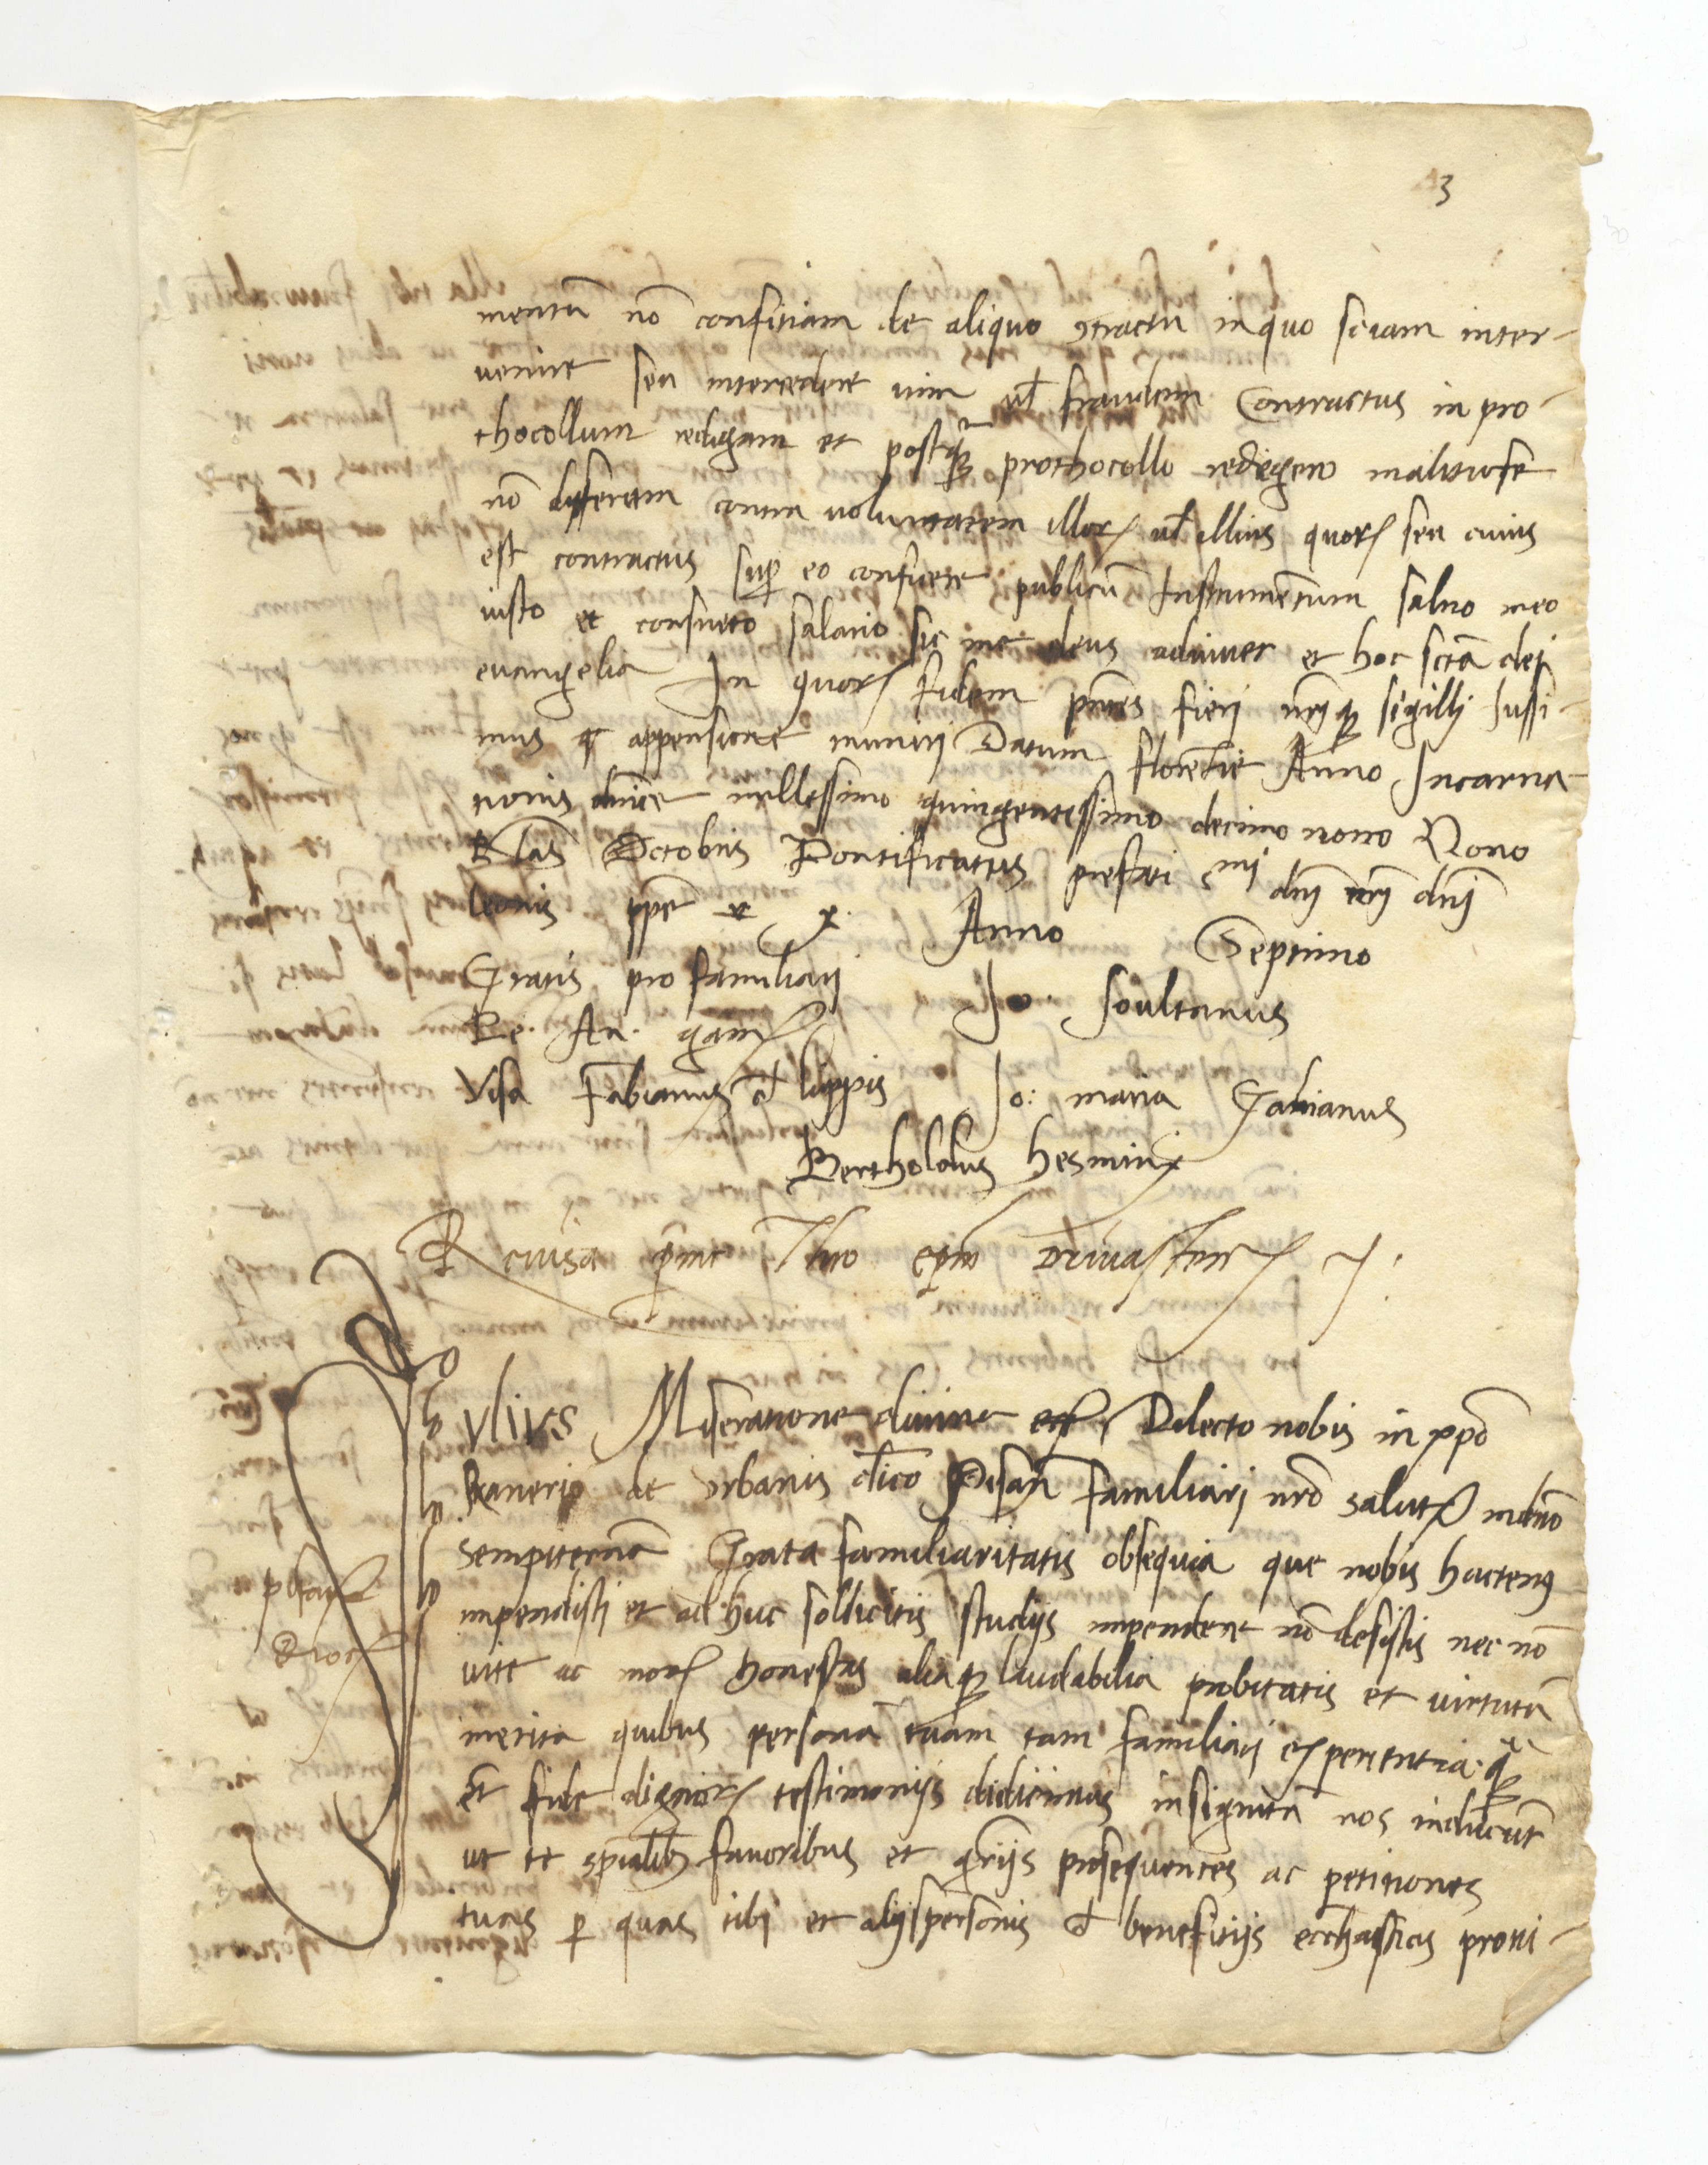 3
mentū nō confitiam de aliquo ɔtractu in quo sciam inter-
venire seu intercedere vim ul fraudem Contractus in pro-
thocollum redigam et postq̄ȝ prothocollo redegero malitiose
nō differam contra voluntatem illoꝝ ul illius quoꝝ seu cuius
est contractus suꝑ eo conficere publicū Instrumētum salvo meo
iusto et consueto salario sic me deus adiuvet et hec scrā dej
evangelia In quoꝝ fidem pn̄tes fierj nr̄jqȝ sigillj Jussi-
mus appensione munirj Datum florētie Anno Incarna-
tionis dn̄ice millessimo quingentessimo decimo nono Nono
Klas Octobris Pontificatus prefati Smi dnj nrj dnj
leonis ppe x. Anno Septimo
Gratis pro familiarj Jo. Soultanus
Re. An. gam
Visa Fabianus d lippis Jo: maria Gabianus
Bertholdus hesminx
Revisa Thio epō Drivasten
Iulivs Miseratione divina Dilecto nobis in xpō
Ranerio de Orbanis clico Pisan̄ Familiarj nrō salutē in dnō
sempiternā Grata familiaritatis obsequia que nobis hactenꝰ
impendisti et ad huc sollicitis studijs impendere nō desistis nec nō
vite ac moꝝ honestas aliaqȝ laudabilia probitatis et virtutū
merita quibus personā tuam tam familiarj experientia q̄ȝ
et fide dignioꝝ testimonijs didicimus insignitā nos inducūt
ut te spialibȝ favoribus et gr̄ijs prosequentes ac petitiones
tuas ꝑ quas tibi et alijs personis d benefitijs ecclḥasticis provi-